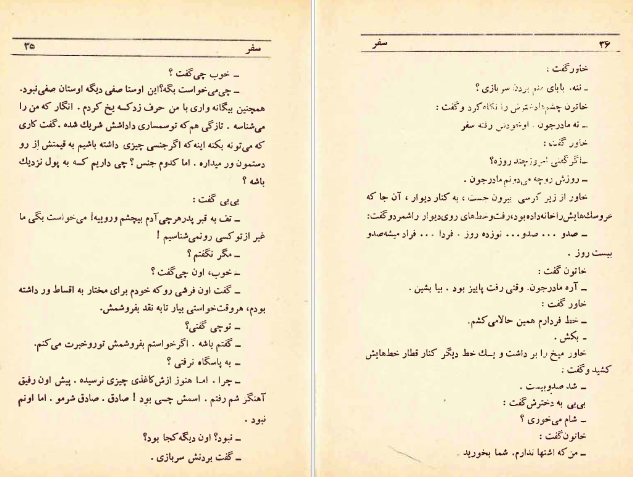 سفر ۳۵
ـ خوب چی‌گفت ؟
ـ چی‌می‌خواست بگه؟این اوستا صفی دیگه اوستان صفی‌نبود.
همچنین بیگانه واری با من حرف زدکه یخ کردم . انگار که من را
می‌شناسه . تازگی هم‌که توسمساری داداشش شریك شده .گفت کاری
که می‌تونه بکنه اینه‌که اگرجنسی چیزی داشته باشیم به قیمتش از رو
دستمون ور میداره . اما کدوم جنس ؟ چی داریم کسه به پول نزدیك
باشه ؟
بی‌بی گفت :
ـ تف به قبر پدرهرچی‌آدم بیچشم ورو می‌خواست بگی ما
غیر ازتو کسی رونمی‌شناسیم !
ـ مگر نگفتم ؟
ـ خوب، اون چی‌گفت ؟
ـ گفت اون فرشی روکه خودم برای مختار به اقساط ور داشته
بودم، هروقت‌خواستی بیار تابه نقد بفروشمش.
ـ توچی گفتی؟
ـ گفتم باشه . اگرخواستم بفروشمش توروخبرت می‌کنم.
ـ به پاسگاه نرفتی ؟
ـ چرا . اما هنوز ازش‌کاغذی چیزی نرسیده . پیش اون رفیق
آهنگر شم رفتم . اسمش چسی بود ! صادق . صادق شرمو . اما اونم
نبود .
ـ نبود؟ اون دیگه‌کجا بود؟
ـ گفت بردنش سربازی .
۳۶ سفر
خاورگفت :
ـ ننه، بابای منم بردن سربازی ؟
خاتون چشمهای‌دخترش را نگاه‌کرد وگفت :
ـ نه مادرجون . اوخودش رفته سفر
خاور گفت:
ـ اگرگفتی امروزچند روزه؟
ـ روزش روچه می‌دونم مادرجون .
خاور از زیر کرسی بیرون جست ، به کنار دیوار ، آن جا که
عروسك‌هایش‌راخانه‌داده‌بود،رفت‌وخط‌های روی‌دیوار راشمردوگفت:
ـ صدو ... صدو... نوزده روز . فردا ... فرداد میشه‌صدو
بیست روز .
خاتون گفت :
ـ آره مادرجون. وقتی رفت پاییز بود . بیا بشین .
خاور گفت :
ـ خط فردارم همین حالامی‌کشم.
ـ بکش .
خاور میخ را بر داشت و یـك خط دیگر کنار قطار خط‌هایش
کشید وگفت :
ـ شد صدوبیست .
بی‌بی به دخترش‌گفت :
ـ شام می‌خوری ؟
خاتون‌گفت :
ـ من‌که اشتها ندارم. شما بخورید .